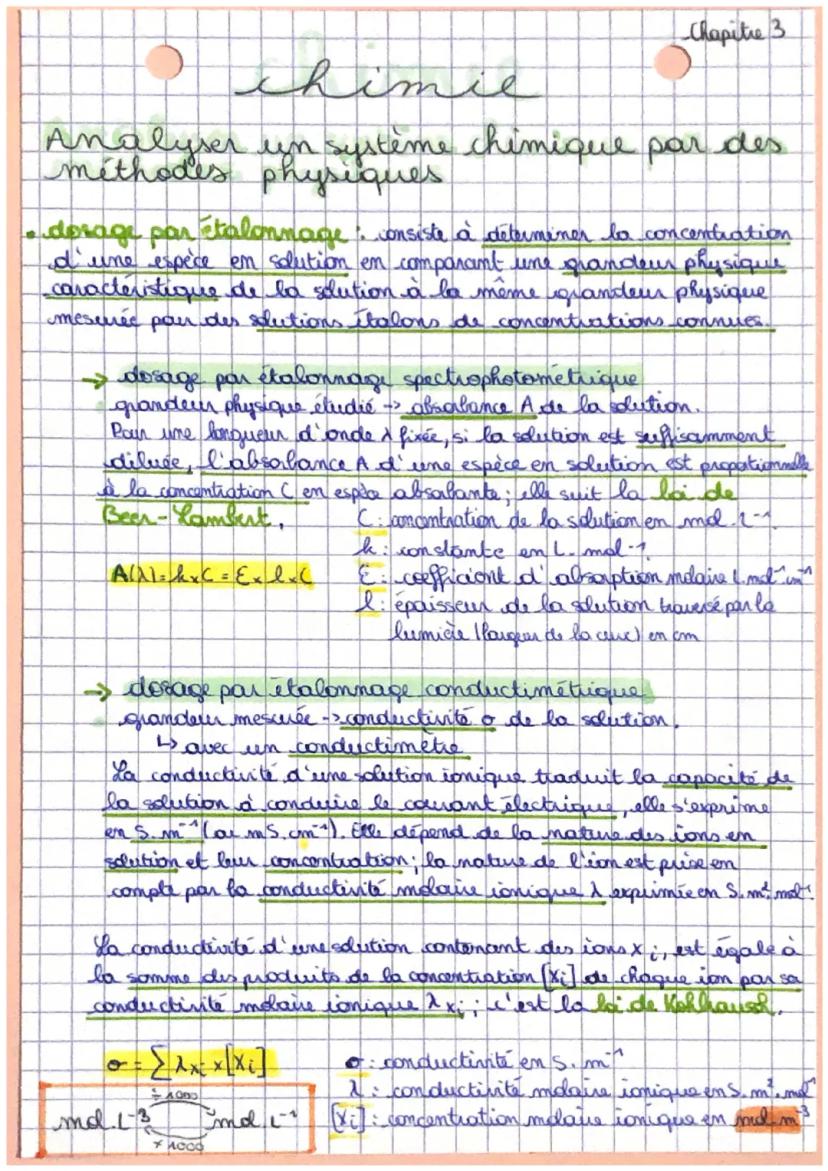 Chapitre 3
chimie
Analyser un système chimique par des
méthodes physiques
• dosage par étalonnage : consiste à déterminer la concentration
d'une espèce en solution en comparant une grandeur physique
caractéristique de la solution à la même grandeur physique
mesurée pour des solutions étalons de concentrations connues.
→ dosage par étalonnage spectrophotométrique
grandeur physique étudié → absorbance A de la solution.
Pour une longueur d'onde λ fixée, si la solution est suffisamment
diluée, l'absorbance A d'une espèce en solution est proportionnelle
à la concentration C en espèce absorbante ; elle suit la loi de
Beer-Lambert.
C : concentration de la solution en mol.L⁻¹
k : constante en L.mol⁻¹
A(λ) = k x C = ε x l x C
ε : coefficient d'absorption molaire L.mol⁻¹.cm⁻¹
l : épaisseur de la solution traversé par la
lumière (largeur de la cuve) en cm
→ dosage par étalonnage conductimétrique
grandeur mesurée → conductivité σ de la solution.
↳ avec un conductimètre
La conductivité d'une solution ionique traduit la capacité de
la solution à conduire le courant électrique, elle s'exprime
en S.m⁻¹ (ou mS.cm⁻¹). Elle dépend de la nature des ions en
solution et leur concentration ; la nature de l'ion est prise en
compte par la conductivité molaire ionique λ exprimée en S.m².mol⁻¹.
La conductivité d'une solution contenant des ions Xi, est égale à
la somme des produits de la concentration [Xi] de chaque ion par sa
conductivité molaire ionique λxi ; c'est la loi de Kohlrausch.
σ = ∑ λxi x [Xi]
σ : conductivité en S.m⁻¹
λ : conductivité molaire ionique en S.m².mol⁻¹
[Xi] : concentration molaire ionique en mol.m⁻³
÷ 1000
mol.L⁻³ mol.L⁻¹
x 1000